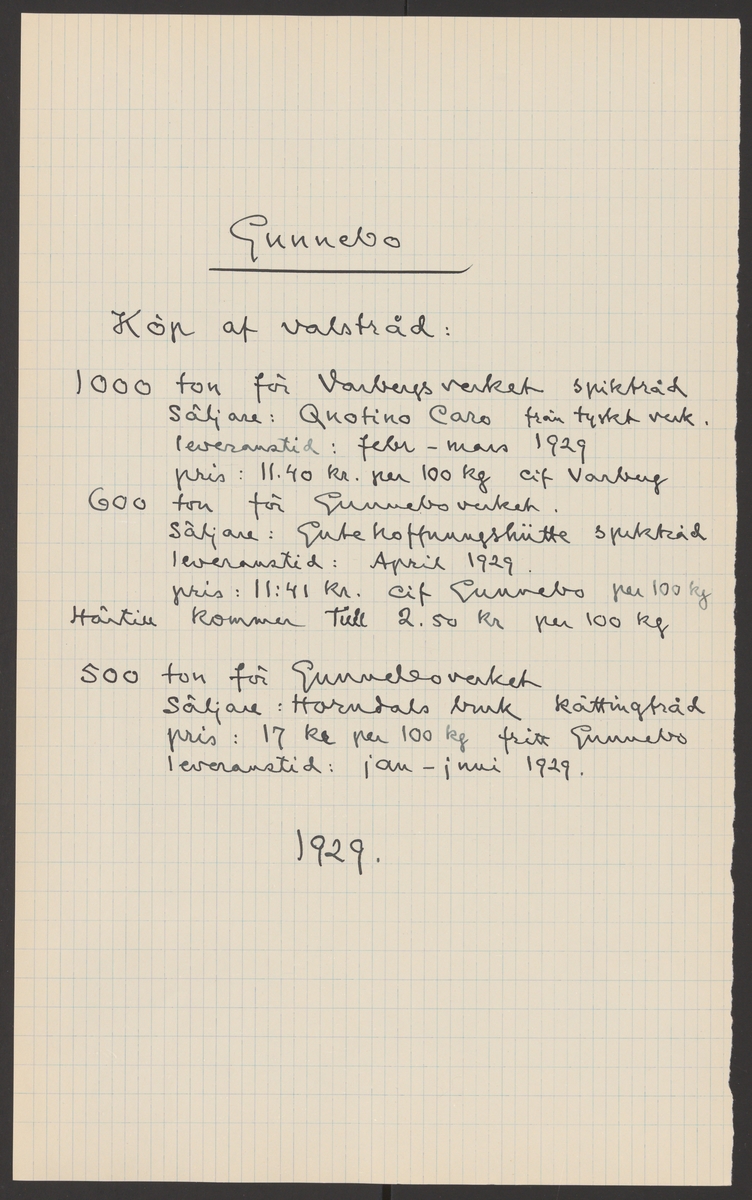 Gunnebo
Köp af valstråd:
1000 ton för Varbergsverket spiktråd
Säljare: Quotino Caro från tyskt verk.
leveranstid: febr - mars 1929
pris: 11.40 kr. per 100 kg cif Varberg
600 ton för Gunneboverket.
Säljare: Gutehoffnungshütte spiktråd
leveranstid: April 1929.
pris: 11:41 kr. cif Gunnebo per 100 kg
Härtill kommer Tull 2.50 kr per 100 kg
500 ton för Gunneboverket
Säljare: Horndals bruk kättingtråd
pris: 17 kr per 100 kg fritt Gunnebo
leveranstid: jan - juni 1929.
1929.